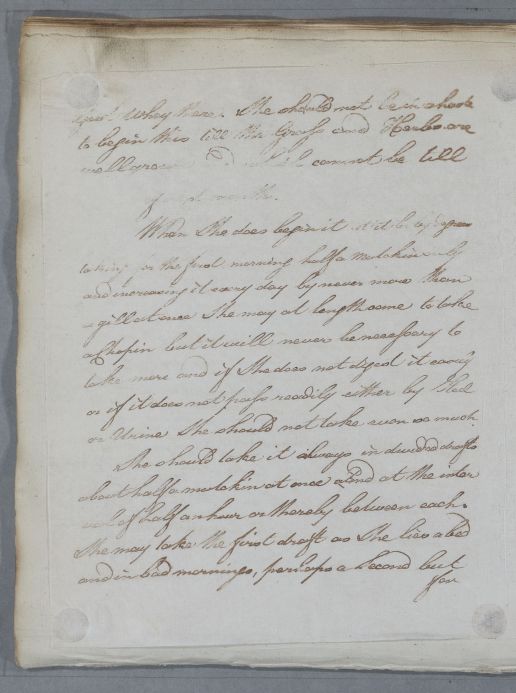 Whey there. She should not be in haste
to begin this till the Grass and Herbs are
well grown cannot be till
month.
When She does begin it let it be by degrees
taking for the first morning half a mutchkin only
and increasing it every day by never more than
a gill at once She may at length come to take
a Chopin but it will never be necessary to
take more and if She does not digest it easily
or if it does not pass readily either by Stool
or Urine She should not take even so much.
She should take it always in divided drafts
about half a mutchkin at once and at the inter
val of half an hour or thereby between each.
She may take the first draft as She lies abed
and in bad mornings, perhaps a Second but
for